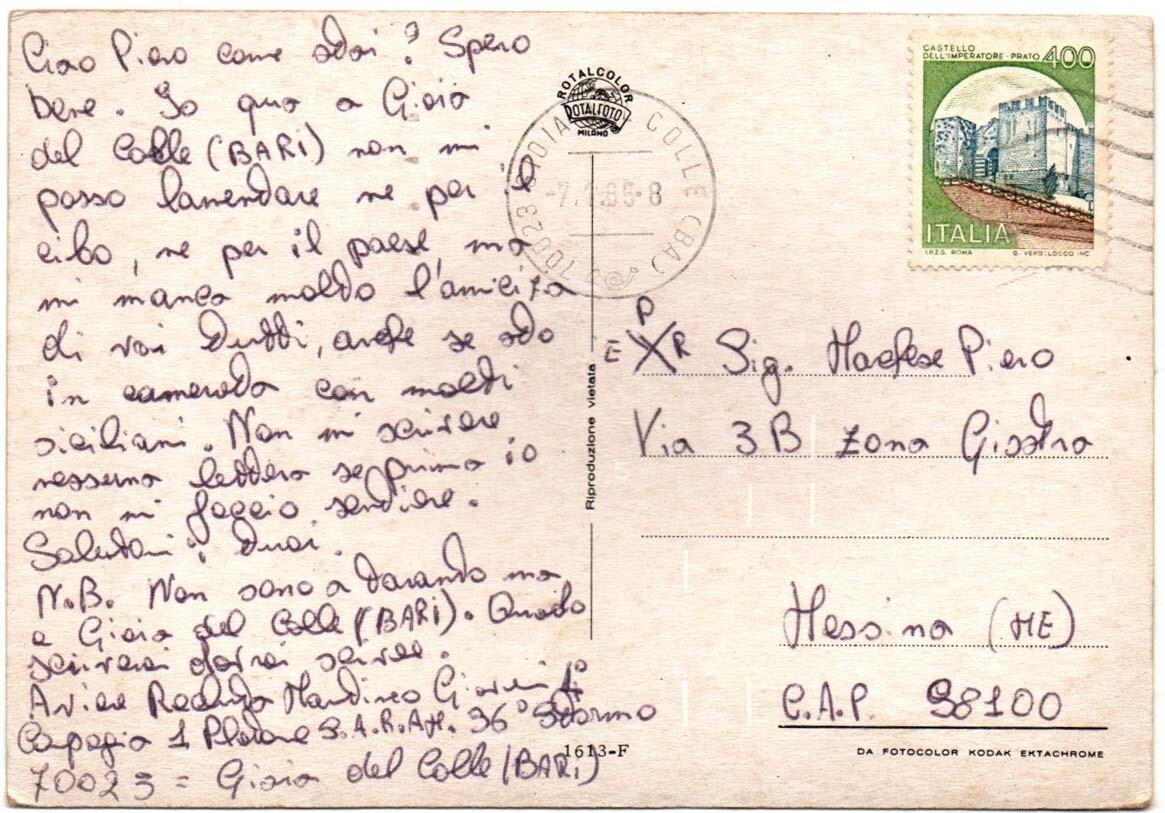 Ciao Piero come stai? Spero
bene. Io qua a Gioia
del Colle (BARI) non mi
posso lamentare ne per il
cibo, ne per il paese, ma
mi manca molto l'amicizia
di voi tutti, anche se sto
in camerata con molti
siciliani. Non mi scrivere
nessuna lettera se prima io
non mi faccio sentire.
Salutami i tuoi.
N.B. Non sono a Taranto ma
a Gioia del Colle (BARI). Quando
scriverai dovrai scrivere.
Aviere Recluta Martino Giovanni 4°
Compagia 1 Plotone S.A.R.A.M. 36° Stormo
70023 = Gioia del Colle (BARI)
ROTALCOLOR
ROTALFOTO
MILANO
70023 GIOIA COLLE (BA)
-7. .85-8
CASTELLO
DELL'IMPERATORE - PRATO 400
ITALIA
I.P.Z.S. ROMA
E P X R Sig. Piero
Via 3B Zona Giostra
Messina (ME)
C.A.P. 98100
Riproduzione vietata
1613-F
DA FOTOCOLOR KODAK EKTACHROME